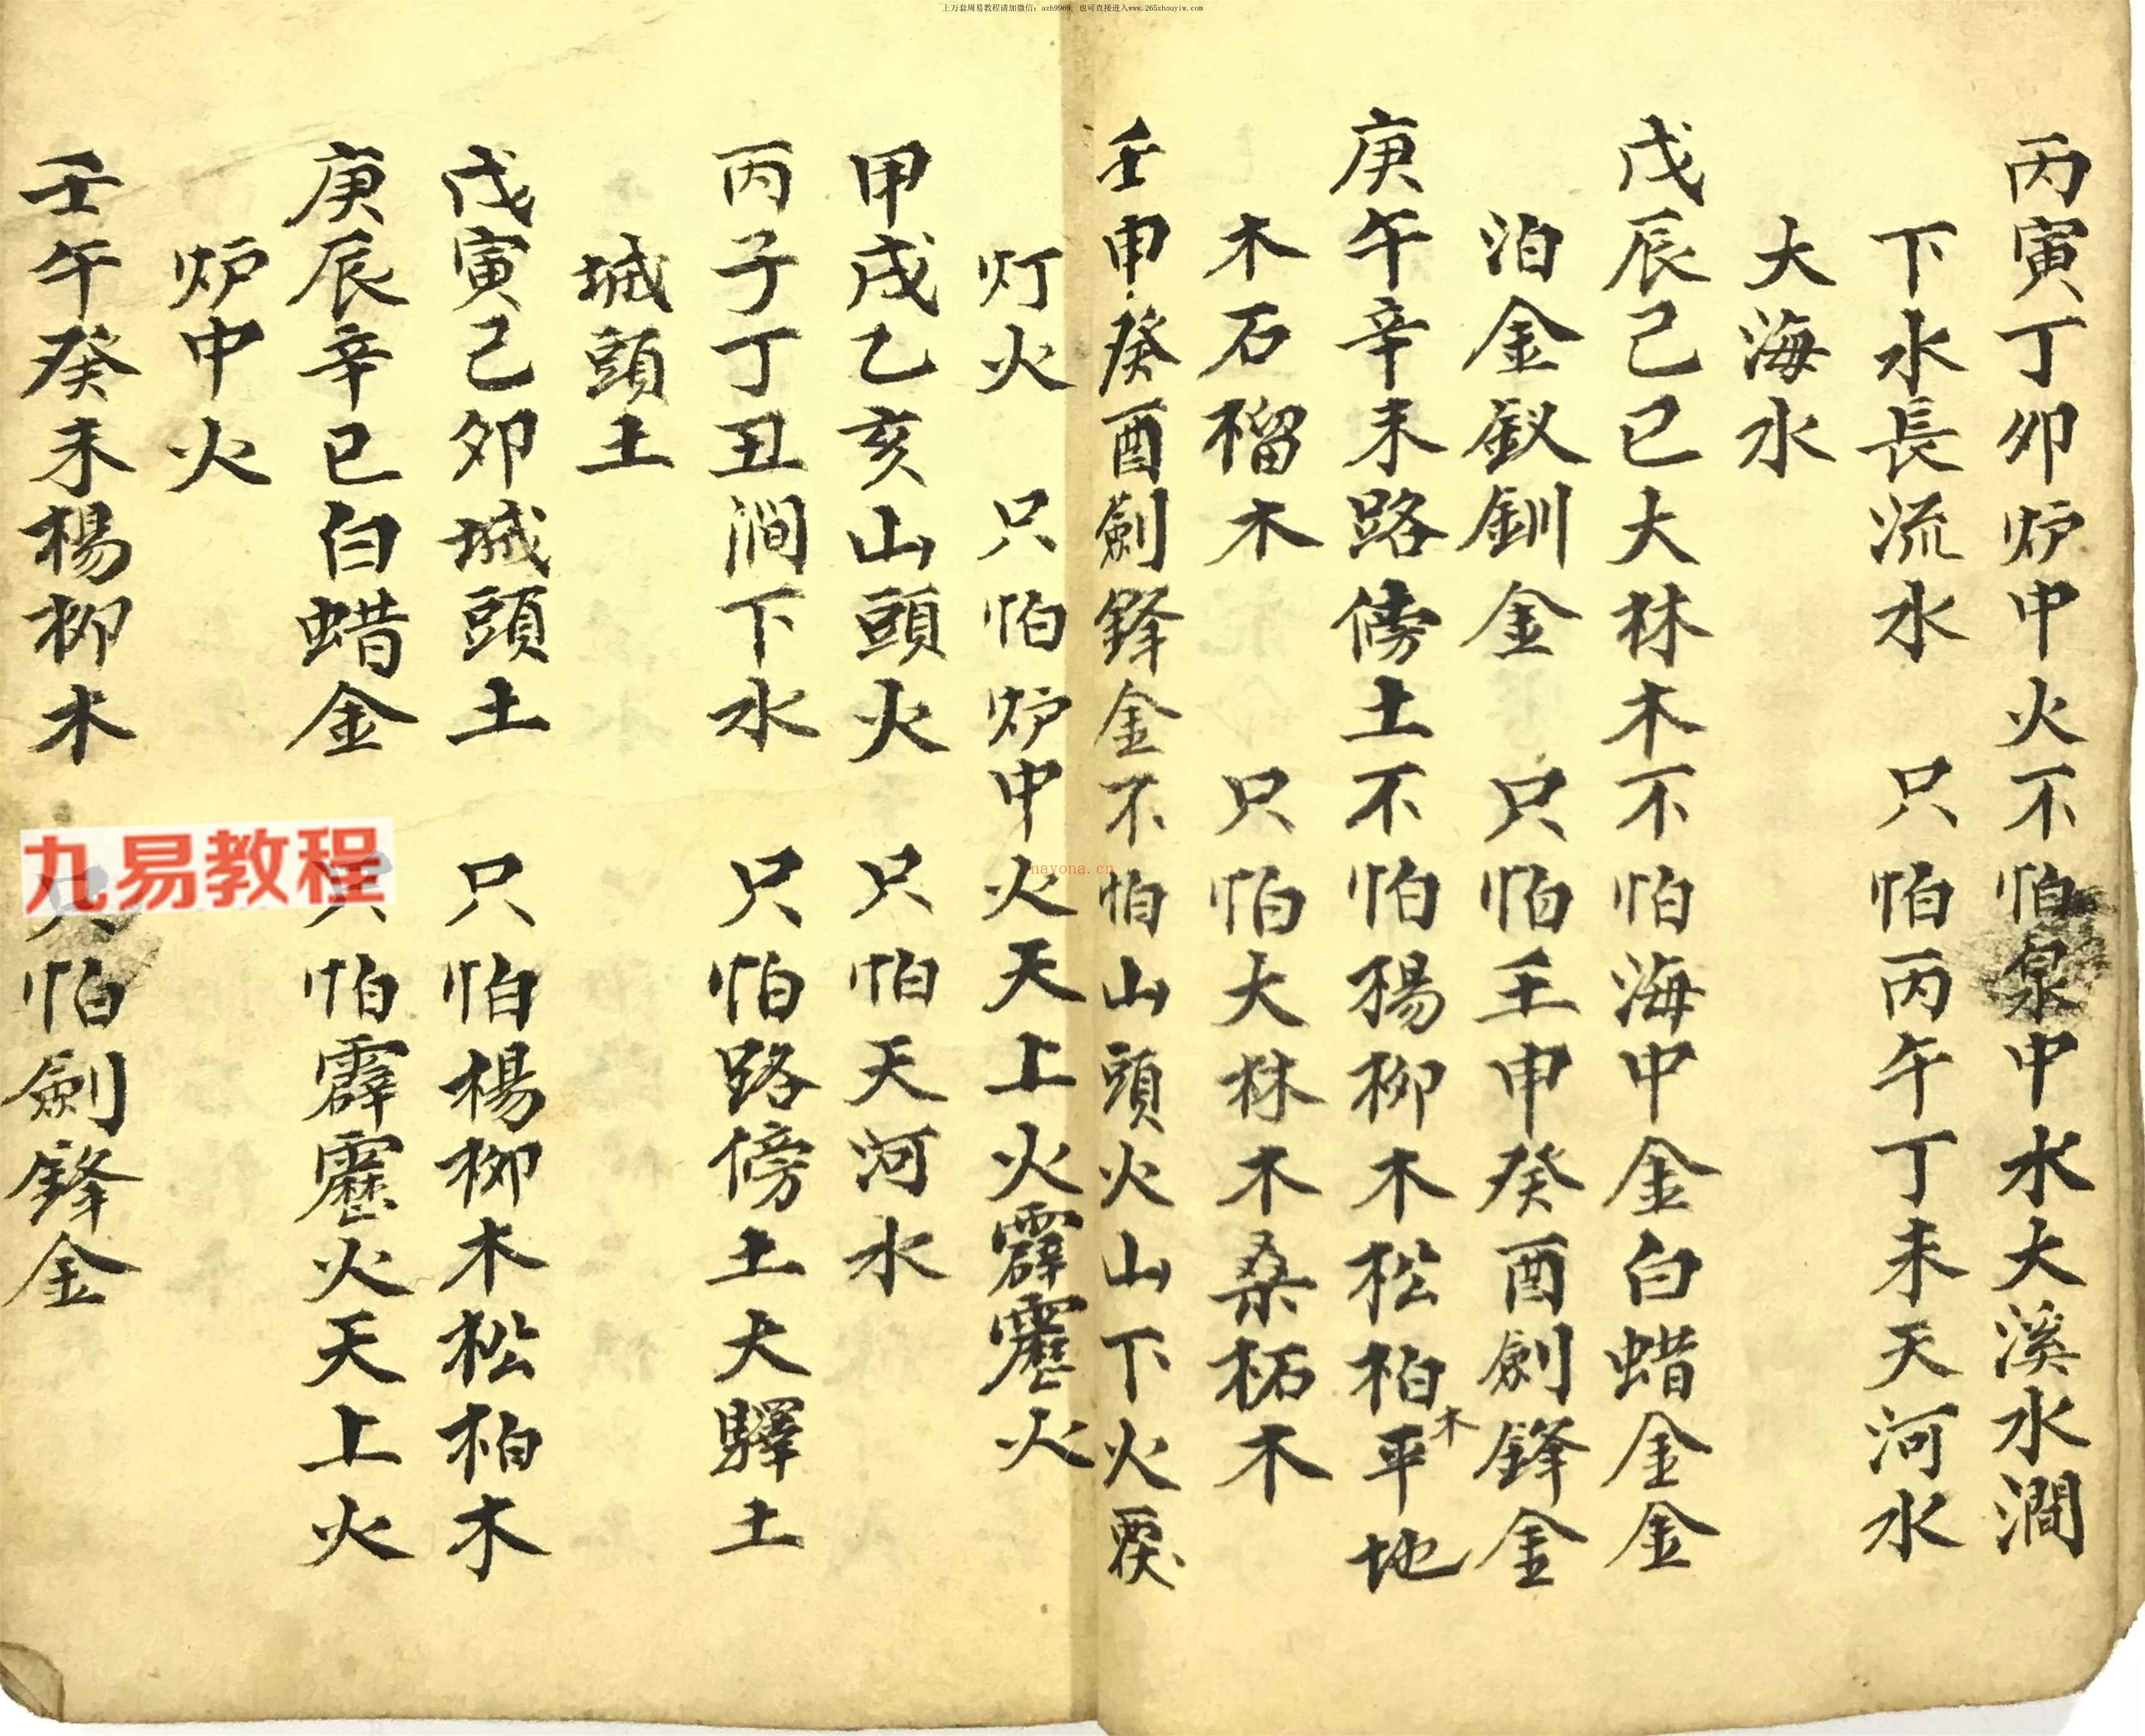 上万套周易教程请加微信：azh9969 也可直接进入www.265zhouyiw.com
丙寅丁卯炉中火不怕泉中水大溪水澗
下水長流水 只怕丙午丁未天河水
大海水
戊辰己巳大林木不怕海中金白蜡金金
泊金釵釧金 只怕壬申癸酉劍鋒金
庚午辛未路傍土不怕楊柳木松柏木平地
木石榴木 只怕大林木桑柘木
壬申癸酉劍鋒金不怕山頭火山下火覄
灯火 只怕炉中火天上火霹靂火
甲戌乙亥山頭火 只怕天河水
丙子丁丑澗下水 只怕路傍土大驛土
城頭土
戊寅己卯城頭土 只怕楊柳木松柏木
庚辰辛巳白蜡金 只怕霹靂火天上火
炉中火
壬午癸未楊柳木 只怕劍鋒金
九易教程
nayona.cn